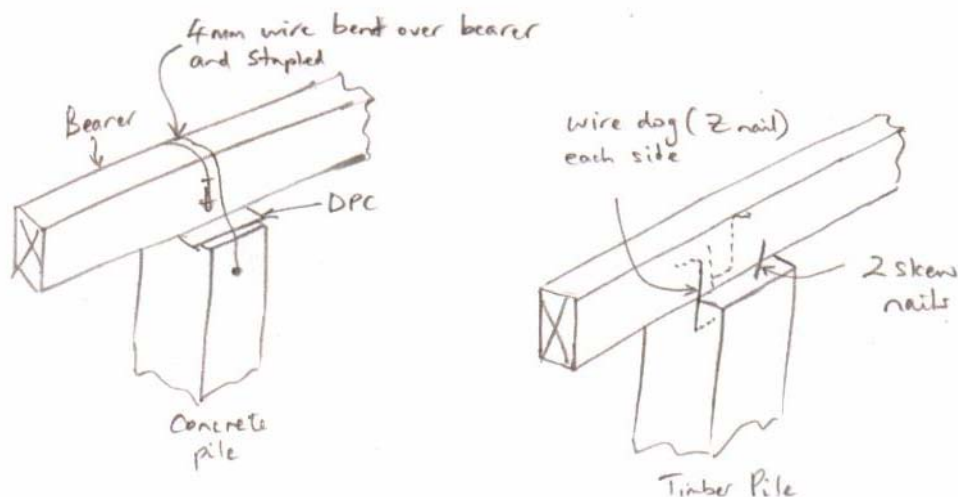 4mm wire bent over bearer
and stapled
Bearer
DPC
Concrete
pile
wire dog (Z nail)
each side
2 skew
nails
Timber Pile